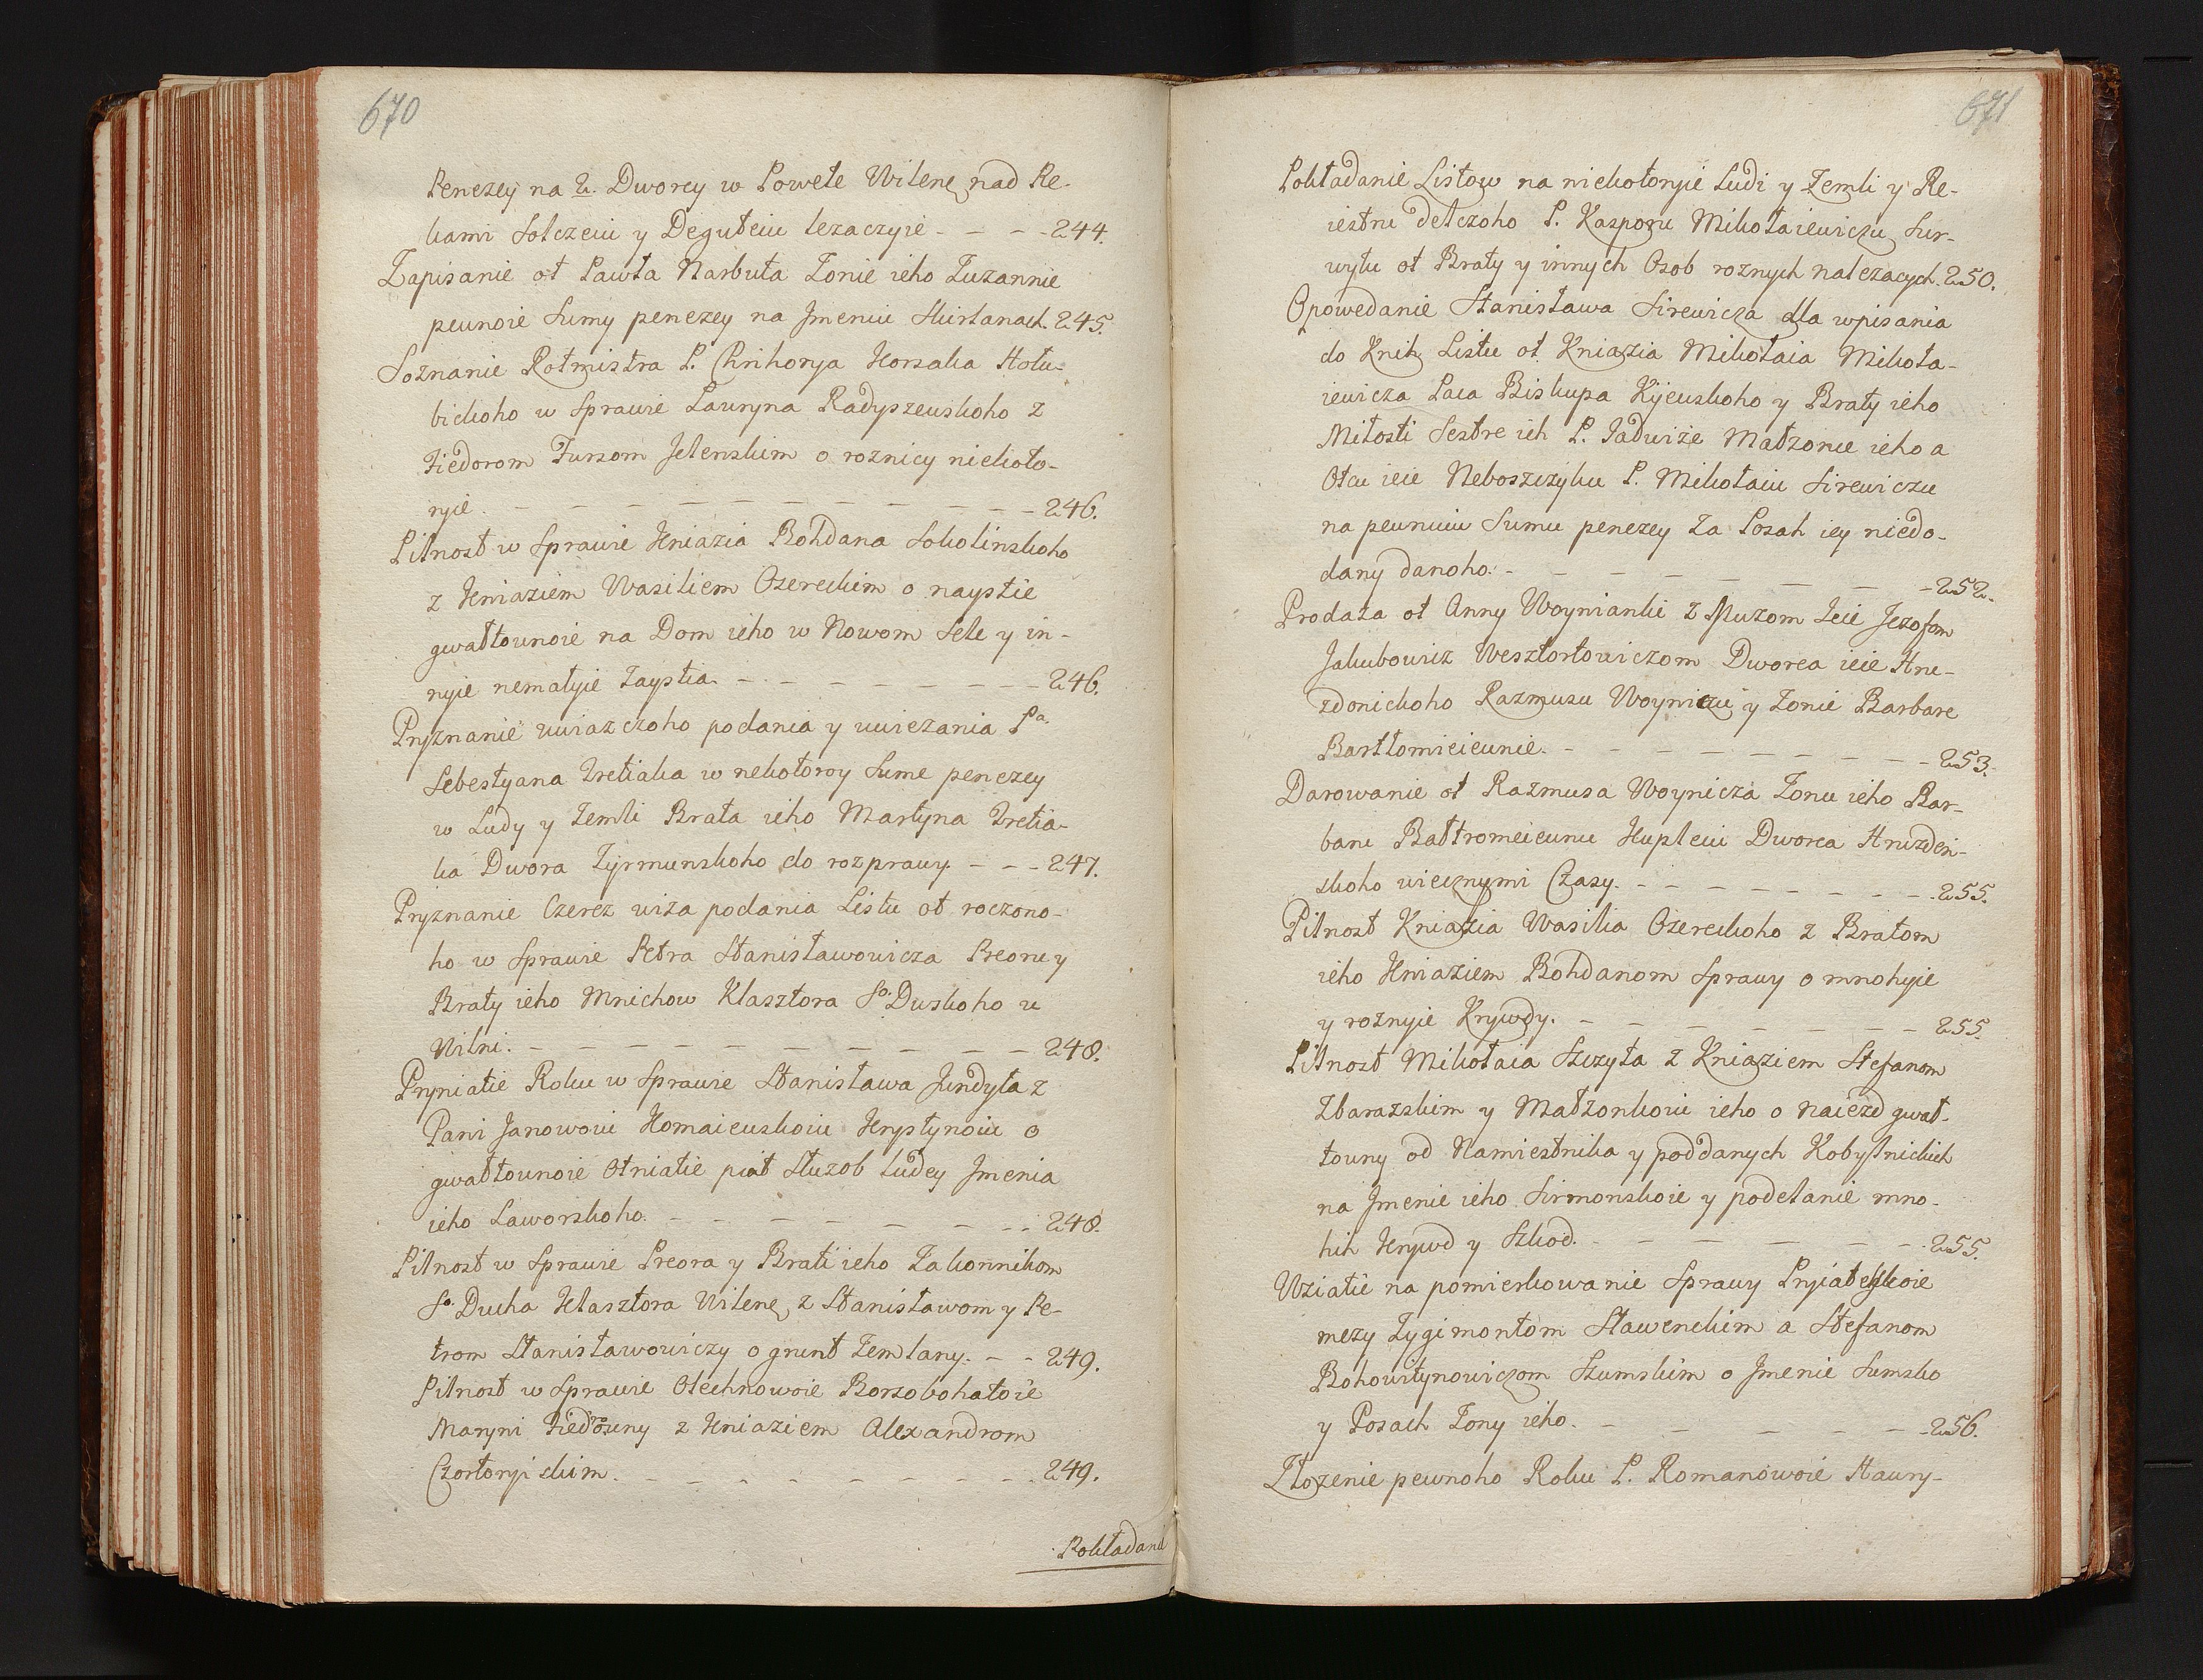 670
Penezey na 2. Dworcy w Powete Wilene nad Re-
kami Solczeiu y Deguteiu lezaczyie - - - - 244.
Zapisanie ot Pawła Narbuta Zonie ieho Zuzannie
peunoie Sumy penezey na Jmeniu Skirlanach. 245.
Soznanie Rotmistra P. Hrihorya Horsaka Hołu-
bickoho w Sprawie Lauryna Radyszeuskoho z
Fiedorom Fursom Jelenskim o roznicy niekoto-
ryie. - - - - - - - - - - 246.
Pilnost w Sprawie Kniazia Bohdana Sokolinskoho
z Kniaziem Wasiliem Ozereckim o naystie
gwałtounoie na Dom ieho w Nowom Sele y in-
nyie nemałyie Zaystia. - - - - - - - - 246.
Pryznanie uwiazczoho podania y uwiezania Pa
Sebestyana Tretiaka w nekotoroy Sume penezey
w Ludy y Zemli Brata ieho Martyna Tretia-
ka Dwora Zyrmunskoho do rozprawy - - - 247.
Pryznanie Czerez wiża podania Listu ot roczono-
ho w Sprawie Petra Stanisławowicza Preoru y
Braty ieho Mnichow Klasztora So. Duskoho u
Wilni. - - - - - - - - - - 248.
Pryniatie Roku w Sprawie Stanisława Jundyła z
Pani Janowoiu Komaieuskoiu Krystynoiu o
gwałtounoie Otniatie piat Służob Ludey Jmenia
ieho Laworskoho. - - - - - - - - 248.
Pilnost w Sprawie Preora y Brati ieho Zakonnikom
So. Ducha Klasztora Wilene z Stanisławom y Pe-
trom Stanisławowiczy o grunt Zemlany. - - 249.
Pilnost w Sprawie Olechnowoie Borsobohatoie
Maryni Fiedorouny z Kniaziem Alexandrom
Czortoryiskim. - - - - - - - - - 249.
Pokładanie
671
Pokładanie Listow na niekotoryie Ludi y Zemli y Re-
iestru delczoho P. Kasporu Mikołaiewiczu Sur-
wyłu ot Braty y innych Osob roznych nalezacych. 250.
Opowedanie Stanisława Sirewicza dla wpisania
do Knih Listu ot Kniazia Mikołaia Mikoła-
iewicza Paca Biskupa Kijeuskoho y Braty ieho
Miłosti Sestre ich P. Jadwiże Małzonce ieho a
Otcu ieie Neboszczyku P. Mikołaiu Sirewiczu
na peunuiu Sumu penezey Za Posah iey niedo-
dany danoho. - - - - - - - - - 252.
Prodaża ot Anny Woynianki z Mużom Ieie Jezofom
Jakubowicz Wesztortowiczom Dworca ieie Hne-
zdonickoho Razmusu Woyniczu y Zonie Barbare
Bartłomieieunie. - - - - - - - - 253.
Darowanie ot Razmusa Woynicza Zonu ieho Bar-
baru Bałtromeieunu Kupleiu Dworca Hnizden-
skoho wiecznymi Czasy. - - - - - - - 255.
Pilnost Kniazia Wasilia Ozereckoho z Bratom
ieho Kniaziem Bohdanom Sprawy o mnohyie
y roznyie Krywdy. - - - - - - - - 255.
Pilnost Mikołaia Szczyta z Kniaziem Stefanom
Zbarazskim y Małzonkoiu ieho o naiezd gwał-
towny od Namiestnika y poddanych Kobylnickich
na Jmenie ieho Sirmonskoie y podełanie mno-
hih Krywd y Szkod. - - - - - - - 255.
Wziatie na pomierkowanie Sprawy Pryiatelskoie
mezy Zygimontom Sławenskim a Stefanom
Bohowitynowiczom Szumskim o Jmenie Sumsko
y Posach Zony ieho. - - - - - - 256.
Złożenie pewnoho Roku P. Romanowoie Haury-